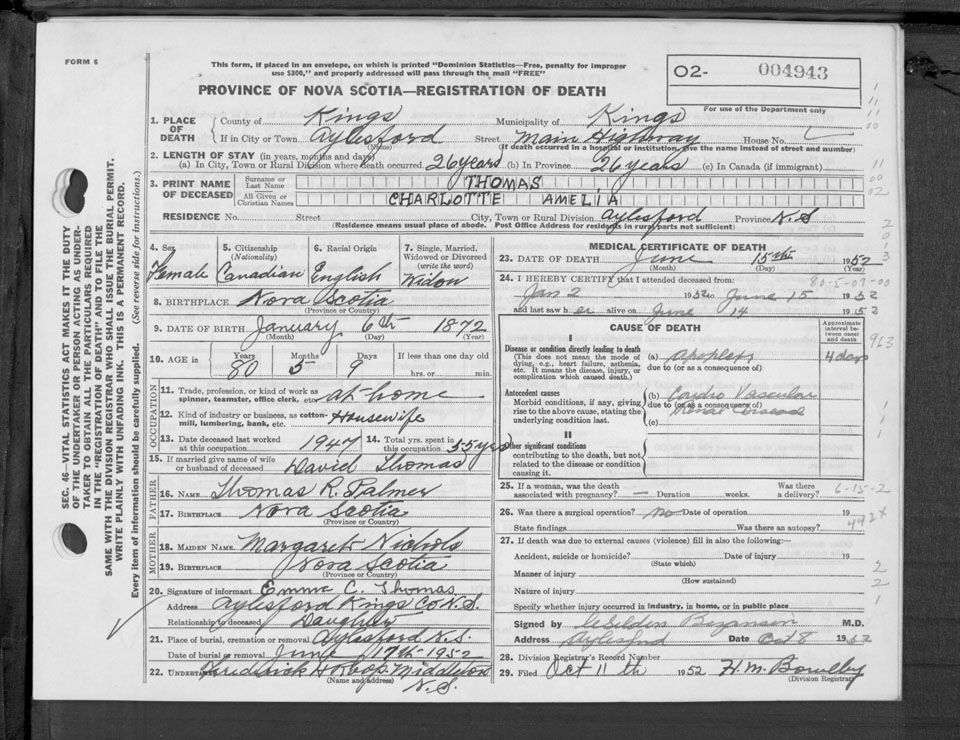 FORM 6
This form, if placed in an envelope, on which is printed "Dominion Statistics—Free, penalty for improper
use $300," and properly addressed will pass through the mail "FREE"
PROVINCE OF NOVA SCOTIA—REGISTRATION OF DEATH
O2- 004943
For use of the Department only
1. PLACE OF DEATH County of Kings Municipality of Kings
If in City or Town Aylesford Street Main Highway House No.
(Name) (If death occurred in a hospital or institution, give the name instead of street and number)
2. LENGTH OF STAY (in years, months and days)
(a) In City, Town or Rural Division where death occurred 26 years (b) In Province 26 years (c) In Canada (if immigrant)
3. PRINT NAME OF DECEASED Surname or Last Name THOMAS
All Given or Christian Names CHARLOTTE AMELIA
RESIDENCE No. Street City, Town or Rural Division Aylesford Province N.S
(Residence means usual place of abode. Post Office Address for residents in rural parts not sufficient)
4. Sex Female
5. Citizenship (Nationality) Canadian
6. Racial Origin English
7. Single, Married, Widowed or Divorced (write the word) Widow
8. BIRTHPLACE Nova Scotia
(Province or Country)
9. DATE OF BIRTH January 6th 1872
(Month) (Day) (Year)
10. AGE in Years 80 Months 5 Days 9 If less than one day old
hrs. or min.
OCCUPATION
11. Trade, profession, or kind of work as spinner, teamster, office clerk, etc. at-home
12. Kind of industry or business, as cotton-mill, lumbering, bank, etc. Housewife
13. Date deceased last worked at this occupation 1947 14. Total yrs. spent in this occupation 55 yrs
15. If married give name of wife or husband of deceased David Thomas
FATHER
16. NAME Thomas R. Palmer
17. BIRTHPLACE Nova Scotia
(Province or Country)
MOTHER
18. MAIDEN NAME Margaret Nichols
19. BIRTHPLACE Nova Scotia
(Province or Country)
20. Signature of informant Emma C. Thomas
Address Aylesford Kings Co N.S.
Relationship to deceased Daughter
21. Place of burial, cremation or removal Aylesford N.S.
Date of burial or removal June 17th-1952
22. UNDERTAKER H Middleton
(Name and address) N.S.
MEDICAL CERTIFICATE OF DEATH
23. DATE OF DEATH June 15th 1952
(Month) (Day) (Year)
24. I HEREBY CERTIFY that I attended deceased from:
80-5-09-00
Jan 2 1952 to June 15 1952
and last saw her alive on June 14 1952
CAUSE OF DEATH
Approximate interval between onset and death
I
Disease or condition directly leading to death (a) apoplexy 4 days
(This does not mean the mode of dying, e.g., heart failure, asthenia, etc. It means the disease, injury, or complication which caused death.) due to (or as a consequence of)
963
Antecedent causes (b) Cardio Vascular
Morbid conditions, if any, giving rise to the above cause, stating the underlying condition last. due to (or as a consequence of)
(c)
II
Other significant conditions
contributing to the death, but not related to the disease or condition causing it.
25. If a woman, was the death associated with pregnancy? — Duration weeks. Was there a delivery?
6-15-2
26. Was there a surgical operation? no Date of operation 19
State findings Was there an autopsy?
442X
27. If death was due to external causes (violence) fill in also the following:—
Accident, suicide or homicide? Date of injury 19
(State which)
Manner of injury
(How sustained)
Nature of injury
Specify whether injury occurred in industry, in home, or in public place
Signed by M.D.
Address Aylesford Date Oct 8 1952
28. Division Registrar's Record Number
29. Filed Oct 11th 1952 H. M. Bowlby
(Division Registrar)
SEC. 46—VITAL STATISTICS ACT MAKES IT THE DUTY
OF THE UNDERTAKER OR PERSON ACTING AS UNDER-
TAKER TO OBTAIN ALL THE PARTICULARS REQUIRED
IN THE "REGISTRATION OF DEATH" AND TO FILE THE
SAME WITH THE DIVISION REGISTRAR WHO SHALL ISSUE THE BURIAL PERMIT.
WRITE PLAINLY WITH UNFADING INK. THIS IS A PERMANENT RECORD.
Every item of information should be carefully supplied. (See reverse side for instructions.)